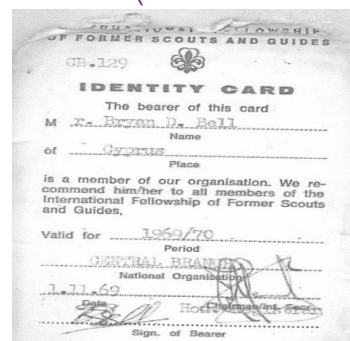 OF FORMER SCOUTS AND GUIDES
CB.129
IDENTITY CARD
The bearer of this card
M r. Bryan D. Bell
Name
of Cyprus
Place
is a member of our organisation. We re-
commend him/her to all members of the
International Fellowship of Former Scouts
and Guides,
Valid for 1969/70
Period
CENTRAL BRANCH
National Organisation
1.11.69
Date Chairman/Int. Secr.
Sign. of Bearer